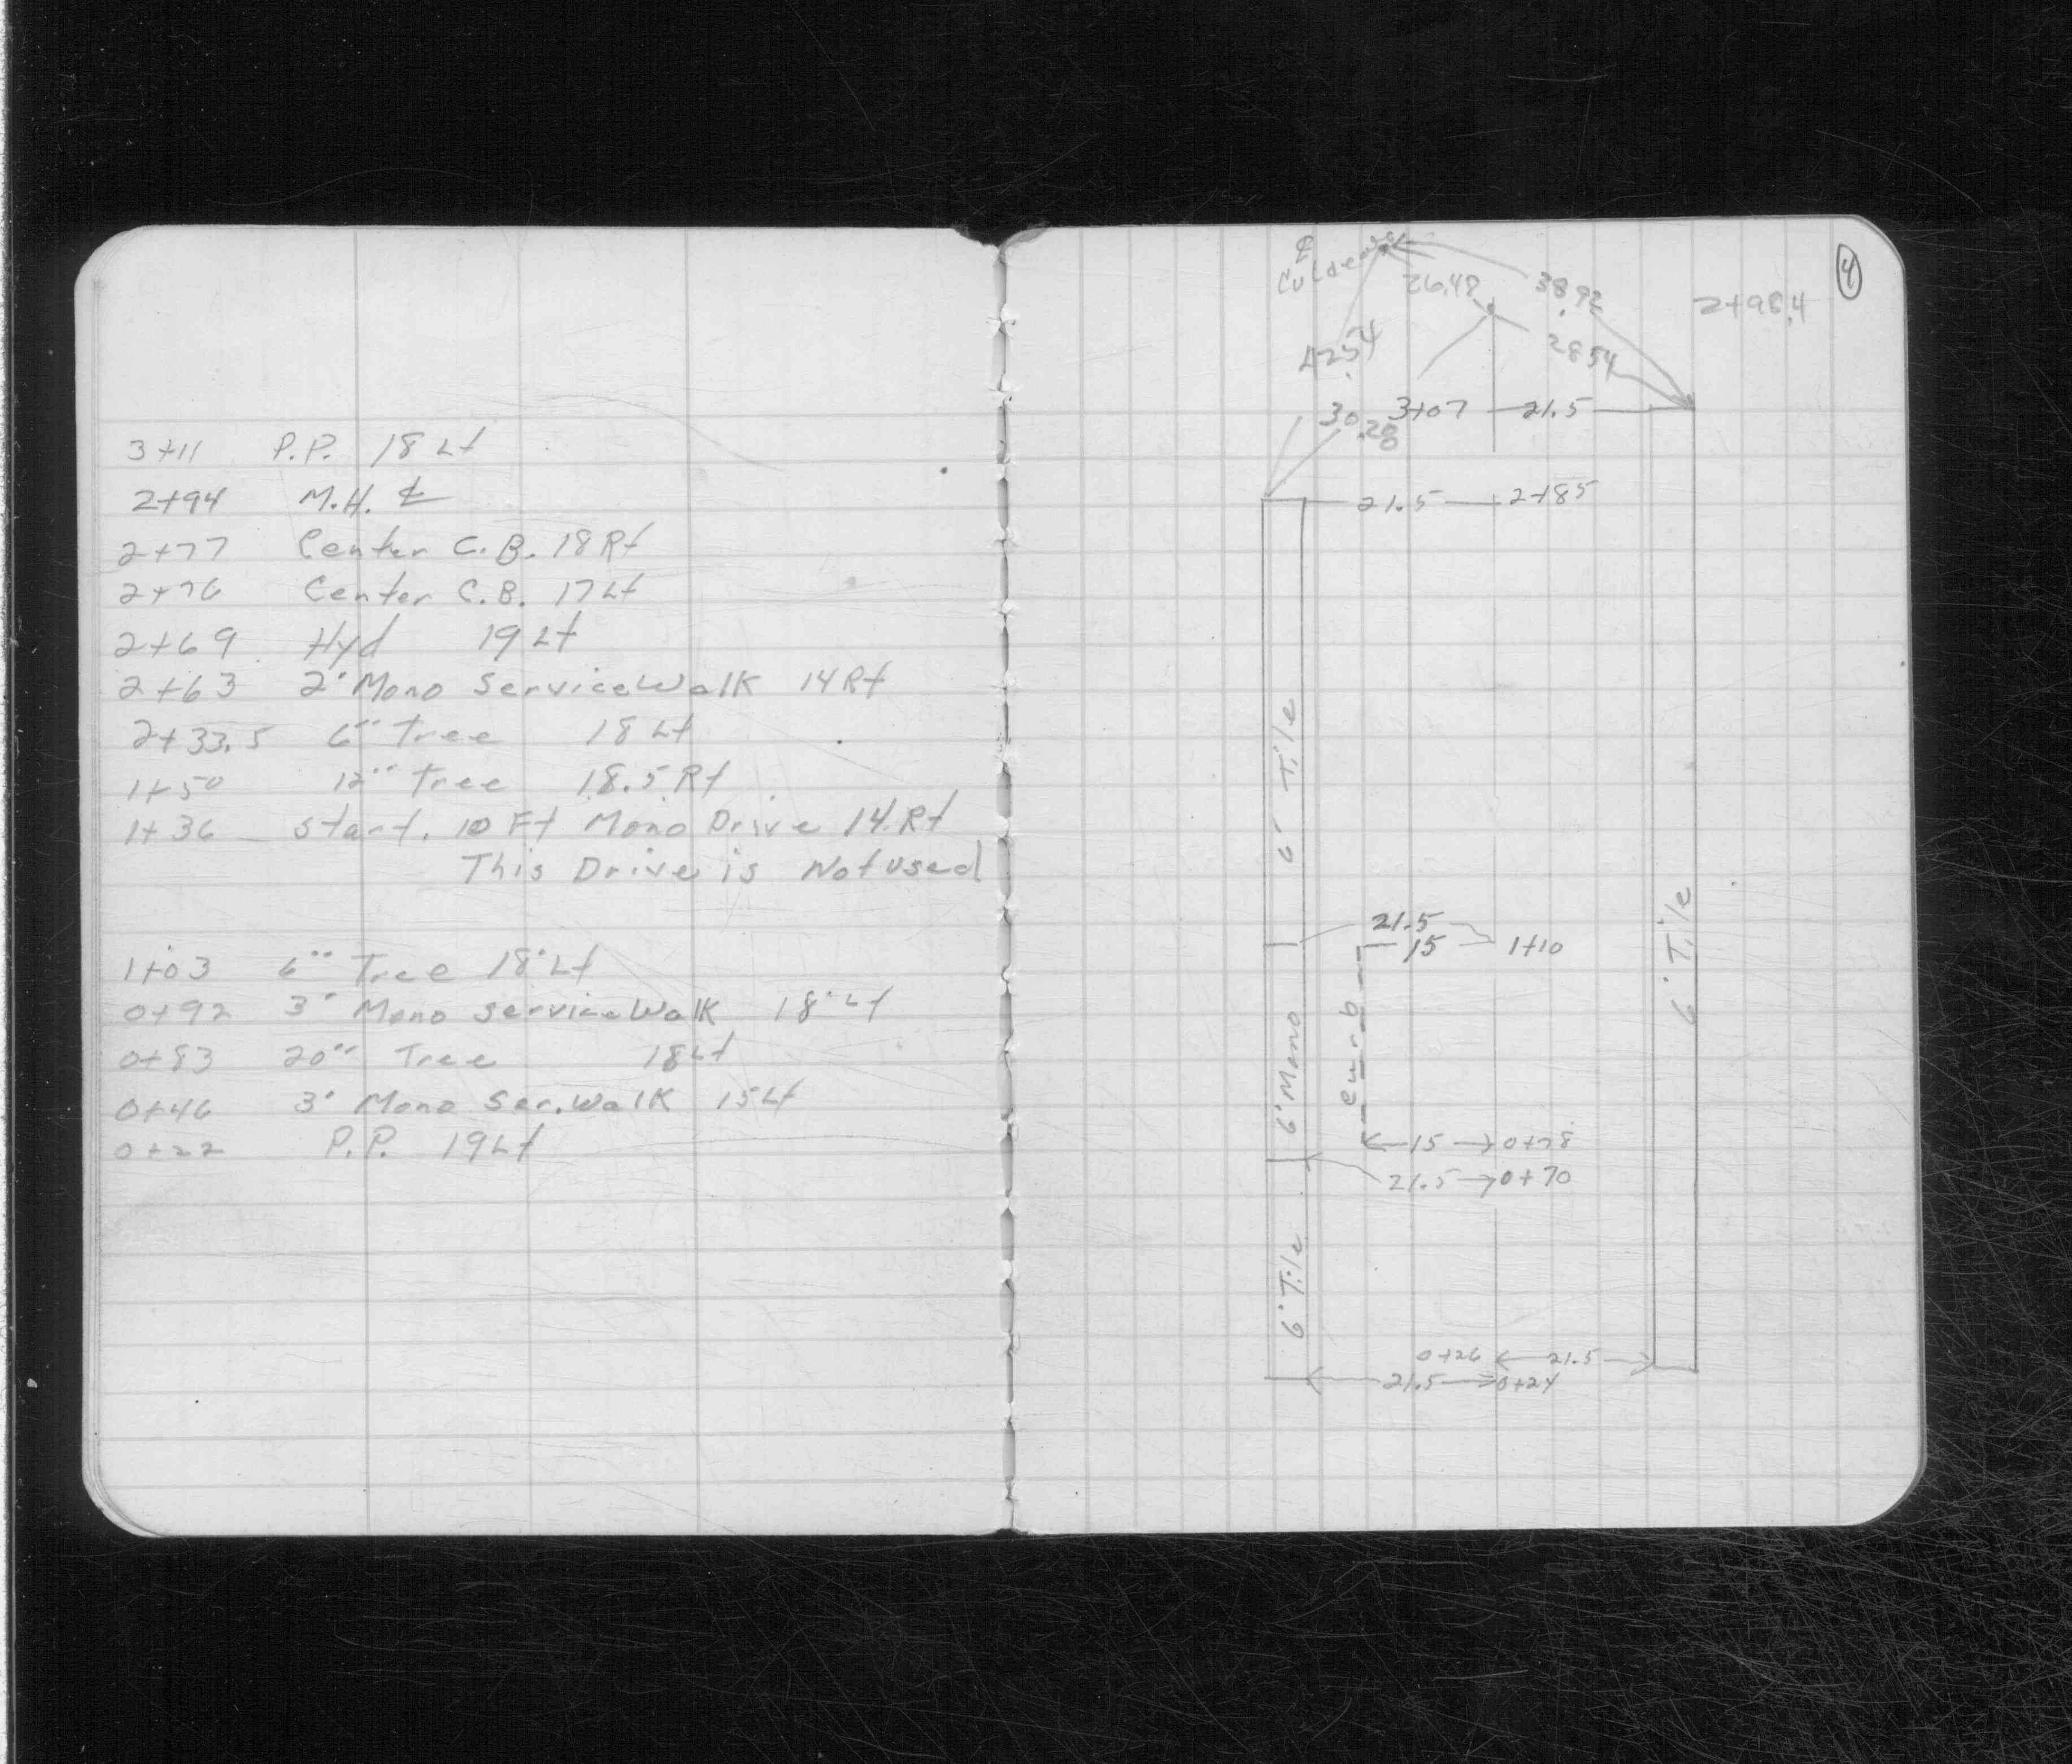 3+11 P.P. 18 Lt
2+94 M.H. ℄
2+77 Center C.B. 18 Rt
2+76 Center C.B. 17 Lt
2+69 Hyd 19 Lt
2+63 2' Mono Service Walk 14 Rt
2+33.5 6" Tree 18 Lt
1+50 12" Tree 18.5 Rt
1+36 Start. 10 Ft Mono Drive 14 Rt
This Drive is Not used
1+03 6" Tree 18' Lt
0+92 3' Mono Service Walk 18' Lt
0+83 20" Tree 18 Lt
0+46 3' Mono Ser. Walk 15 Lt
0+22 P.P. 19 Lt
4
℄
26.48
38.92
2+98.4
42.54
28.54
30.28
3+07 21.5
21.5 2+85
6' Tile
21.5
15 1+10
6' Tile
6' Mono
curb
15 0+78
21.5 0+70
6' Tile
0+26 21.5
21.5 0+24